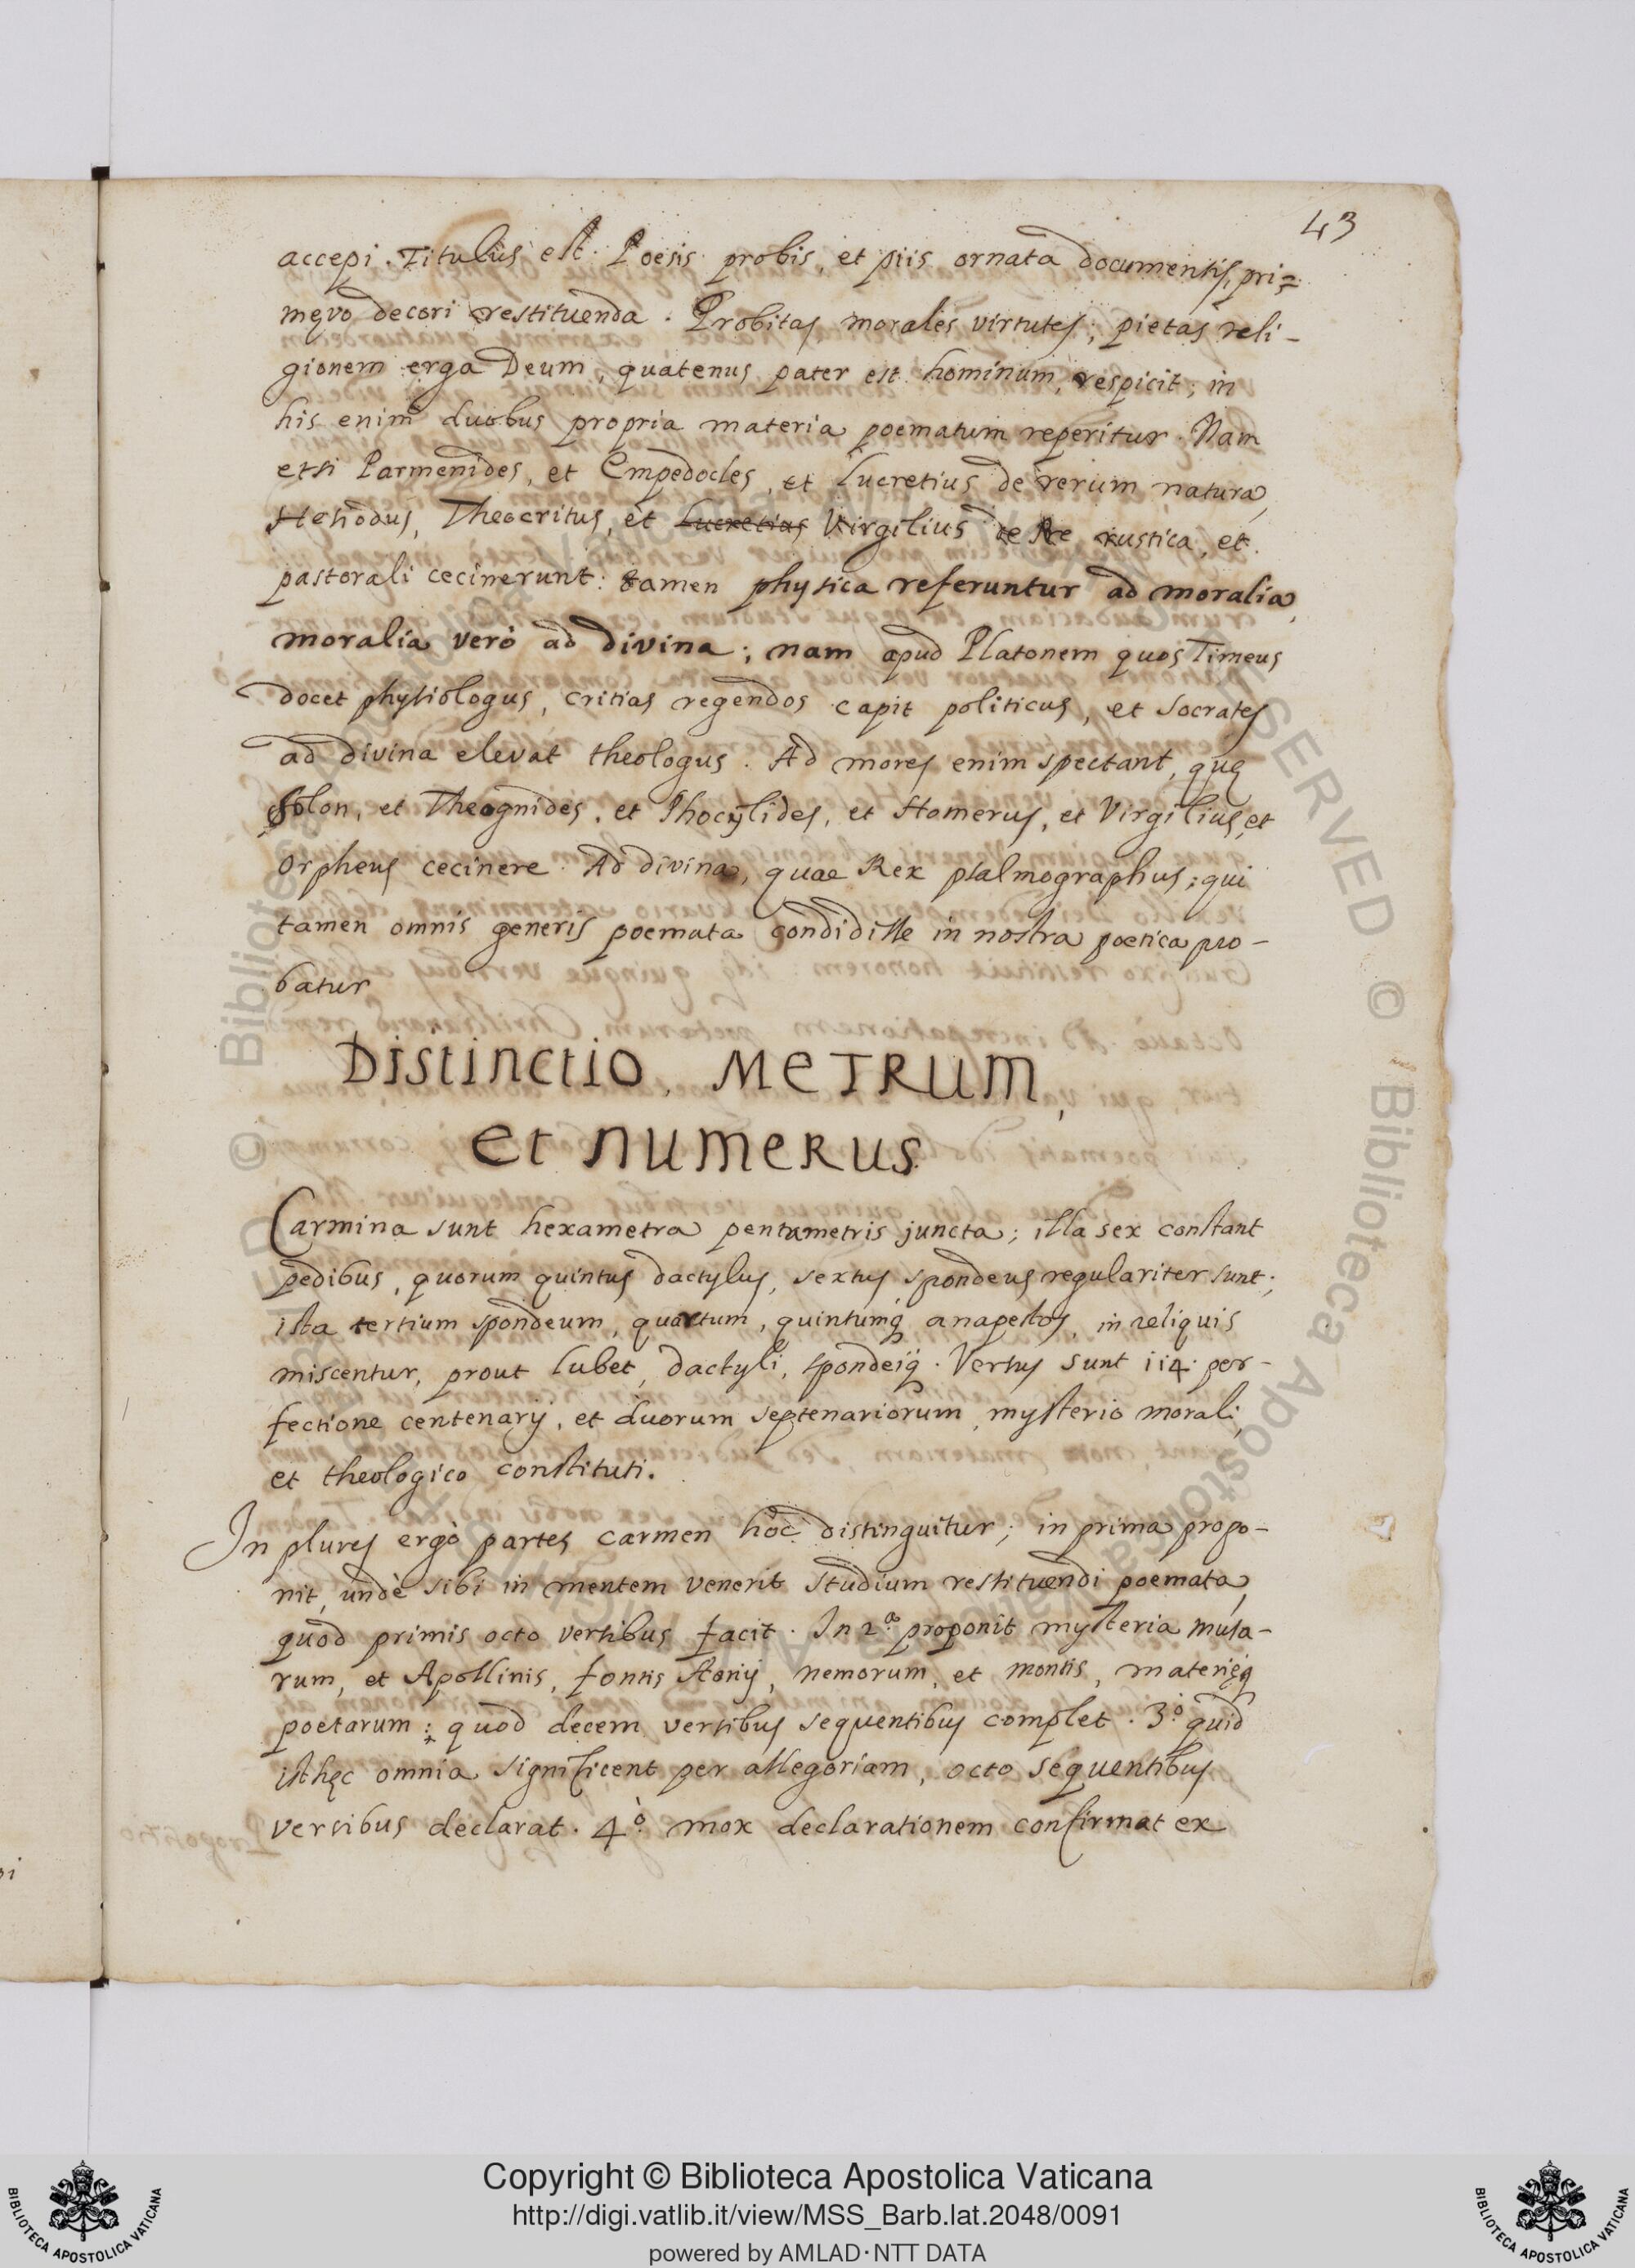 43
accepi. Titulus est. Poesis probis, et piis ornata documentis, pri=
męvo decori restituenda. Probitas morales virtutes; pietas reli-
gionem erga Deum, quatenus pater est hominum, respicit; in
his enim duobus propria materia poematum reperitur. Nam
etsi Parmenides, et Empedocles, et Lucretius de rerum natura,
Hesiodus, Theocritus, et Lucretius Virgilius de Re rustica, et
pastorali cecinerunt: tamen physica referuntur ad moralia,
moralia verò ad divina; nam apud Platonem quos Timeus
docet physiologus, Critias regendos capit politicus, et Socrates
ad divina elevat theologus. Ad mores enim spectant, quę
Solon, et Theognides, et Phocylides, et Homerus, et Virgilius, et
Orpheus cecinere. Ad divina, quae Rex psalmographus; qui
tamen omnis generis poemata condidisse in nostra poetica pro-
batur
Distinctio, METRUM,
et numerus
Carmina sunt hexametra pentametris juncta; illa sex constant
pedibus, quorum quintus dactylus, sextus spondeus regulariter sunt;
ista tertium spondeum, quartum, quintumq anapestos, in reliquis
miscentur, prout lubet, dactyli, spondeiq. Versus sunt 114. per-
fectione centenarij, et duorum septenariorum mysterio morali,
et theologico constituti.
In plures ergò partes carmen hoc distinguitur; in prima propo-
nit, undè sibi in mentem venerit studium restituendi poemata,
quod primis octo versibus facit. In 2ª proponit mysteria musa-
rum, et Apollinis, fontis Aonij, nemorum, et montis, materięq
poetarum: quod decem versibus sequentibus complet. 3º quid
isthęc omnia significent per allegoriam, octo sequentibus
versibus declarat. 4º mox declarationem confirmat ex
© Biblioteca Apostolica Vaticana
Copyright © Biblioteca Apostolica Vaticana
http://digi.vatlib.it/view/MSS_Barb.lat.2048/0091
powered by AMLAD·NTT DATA
BIBLIOTECA APOSTOLICA VATICANA
BIBLIOTECA APOSTOLICA VATICANA